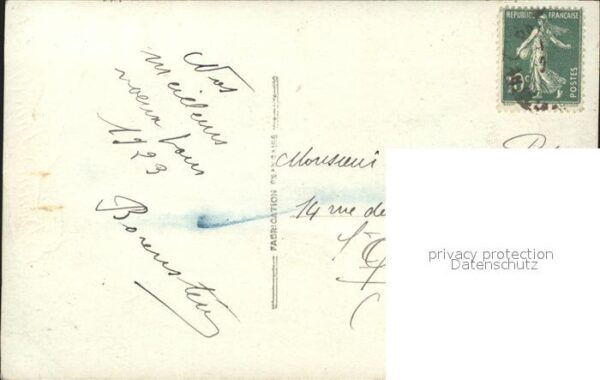 Nos
meilleurs
voeux pour
1923
Borenstein
FABRICATION FRANÇAISE
REPUBLIQUE FRANÇAISE
POSTES
Monsieur
14 rue de
privacy protection
Datenschutz